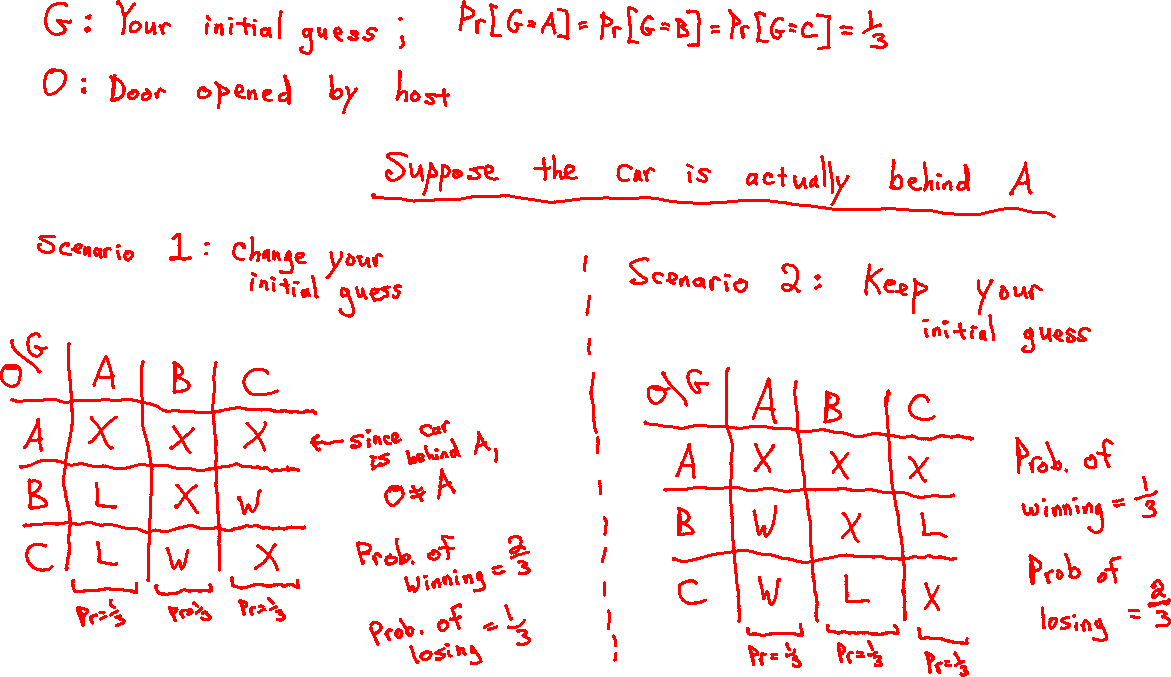 G: Your initial guess; Pr[G=A]=Pr[G=B]=Pr[G=C]=1/3
O: Door opened by host
Suppose the car is actually behind A
Scenario 1: Change your
initial guess
O\G A B C
A X X X
B L X W
C L W X
Pr=1/3 Pr=1/3 Pr=1/3
← since car
is behind A,
O≠A
Prob. of
Winning=2/3
Prob. of
losing =1/3
Scenario 2: Keep your
initial guess
O\G A B C
A X X X
B W X L
C W L X
Pr=1/3 Pr=1/3 Pr=1/3
Prob. of
winning=1/3
Prob of
losing =2/3